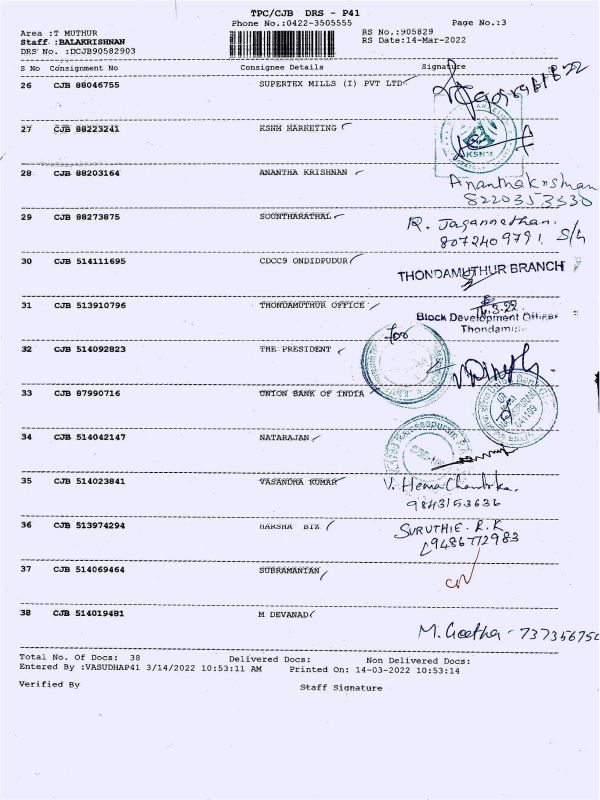 TPC/CJB DRS - P41
Phone No.:0422-3505555
Page No.:3
Area :T MUTHUR
RS No.:905829
Staff :BALAKRISHNAN
RS Date:14-Mar-2022
DRS No. :DCJB90582903
S No Consignment No Consignee Details Signature
26 CJB 88046755 SUPERTEX MILLS (I) PVT LTD
27 CJB 88223241 KSNM MARKETING
KSNM
28 CJB 88203164 ANANTHA KRISHNAN
Ananthakrishnan
8220353530
29 CJB 88273875 SOUNTHARATHAL
R. Jagannathan.
8072409791. S/h
30 CJB 514111695 CDCC9 ONDIDPUDUR
THONDAMUTHUR BRANCH
31 CJB 513910796 THONDAMUTHUR OFFICE
14.3.22
Block Development Officer
for
32 CJB 514092823 THE PRESIDENT
33 CJB 87990716 UNION BANK OF INDIA
34 CJB 514042147 NATARAJAN
35 CJB 514023841 VASANDHA KUMAR
V. Hema Chandrika.
9843153636
36 CJB 513974294 HARSHA BIZ
SURUTHIE. R.K
9486772983
37 CJB 514069464 SUBRAMANIAN
38 CJB 514019481 M DEVANAD
M. Geetha - 737356750
Total No. Of Docs: 38 Delivered Docs: Non Delivered Docs:
Entered By :VASUDHAP41 3/14/2022 10:53:11 AM Printed On: 14-03-2022 10:53:14
Verified By Staff Signature